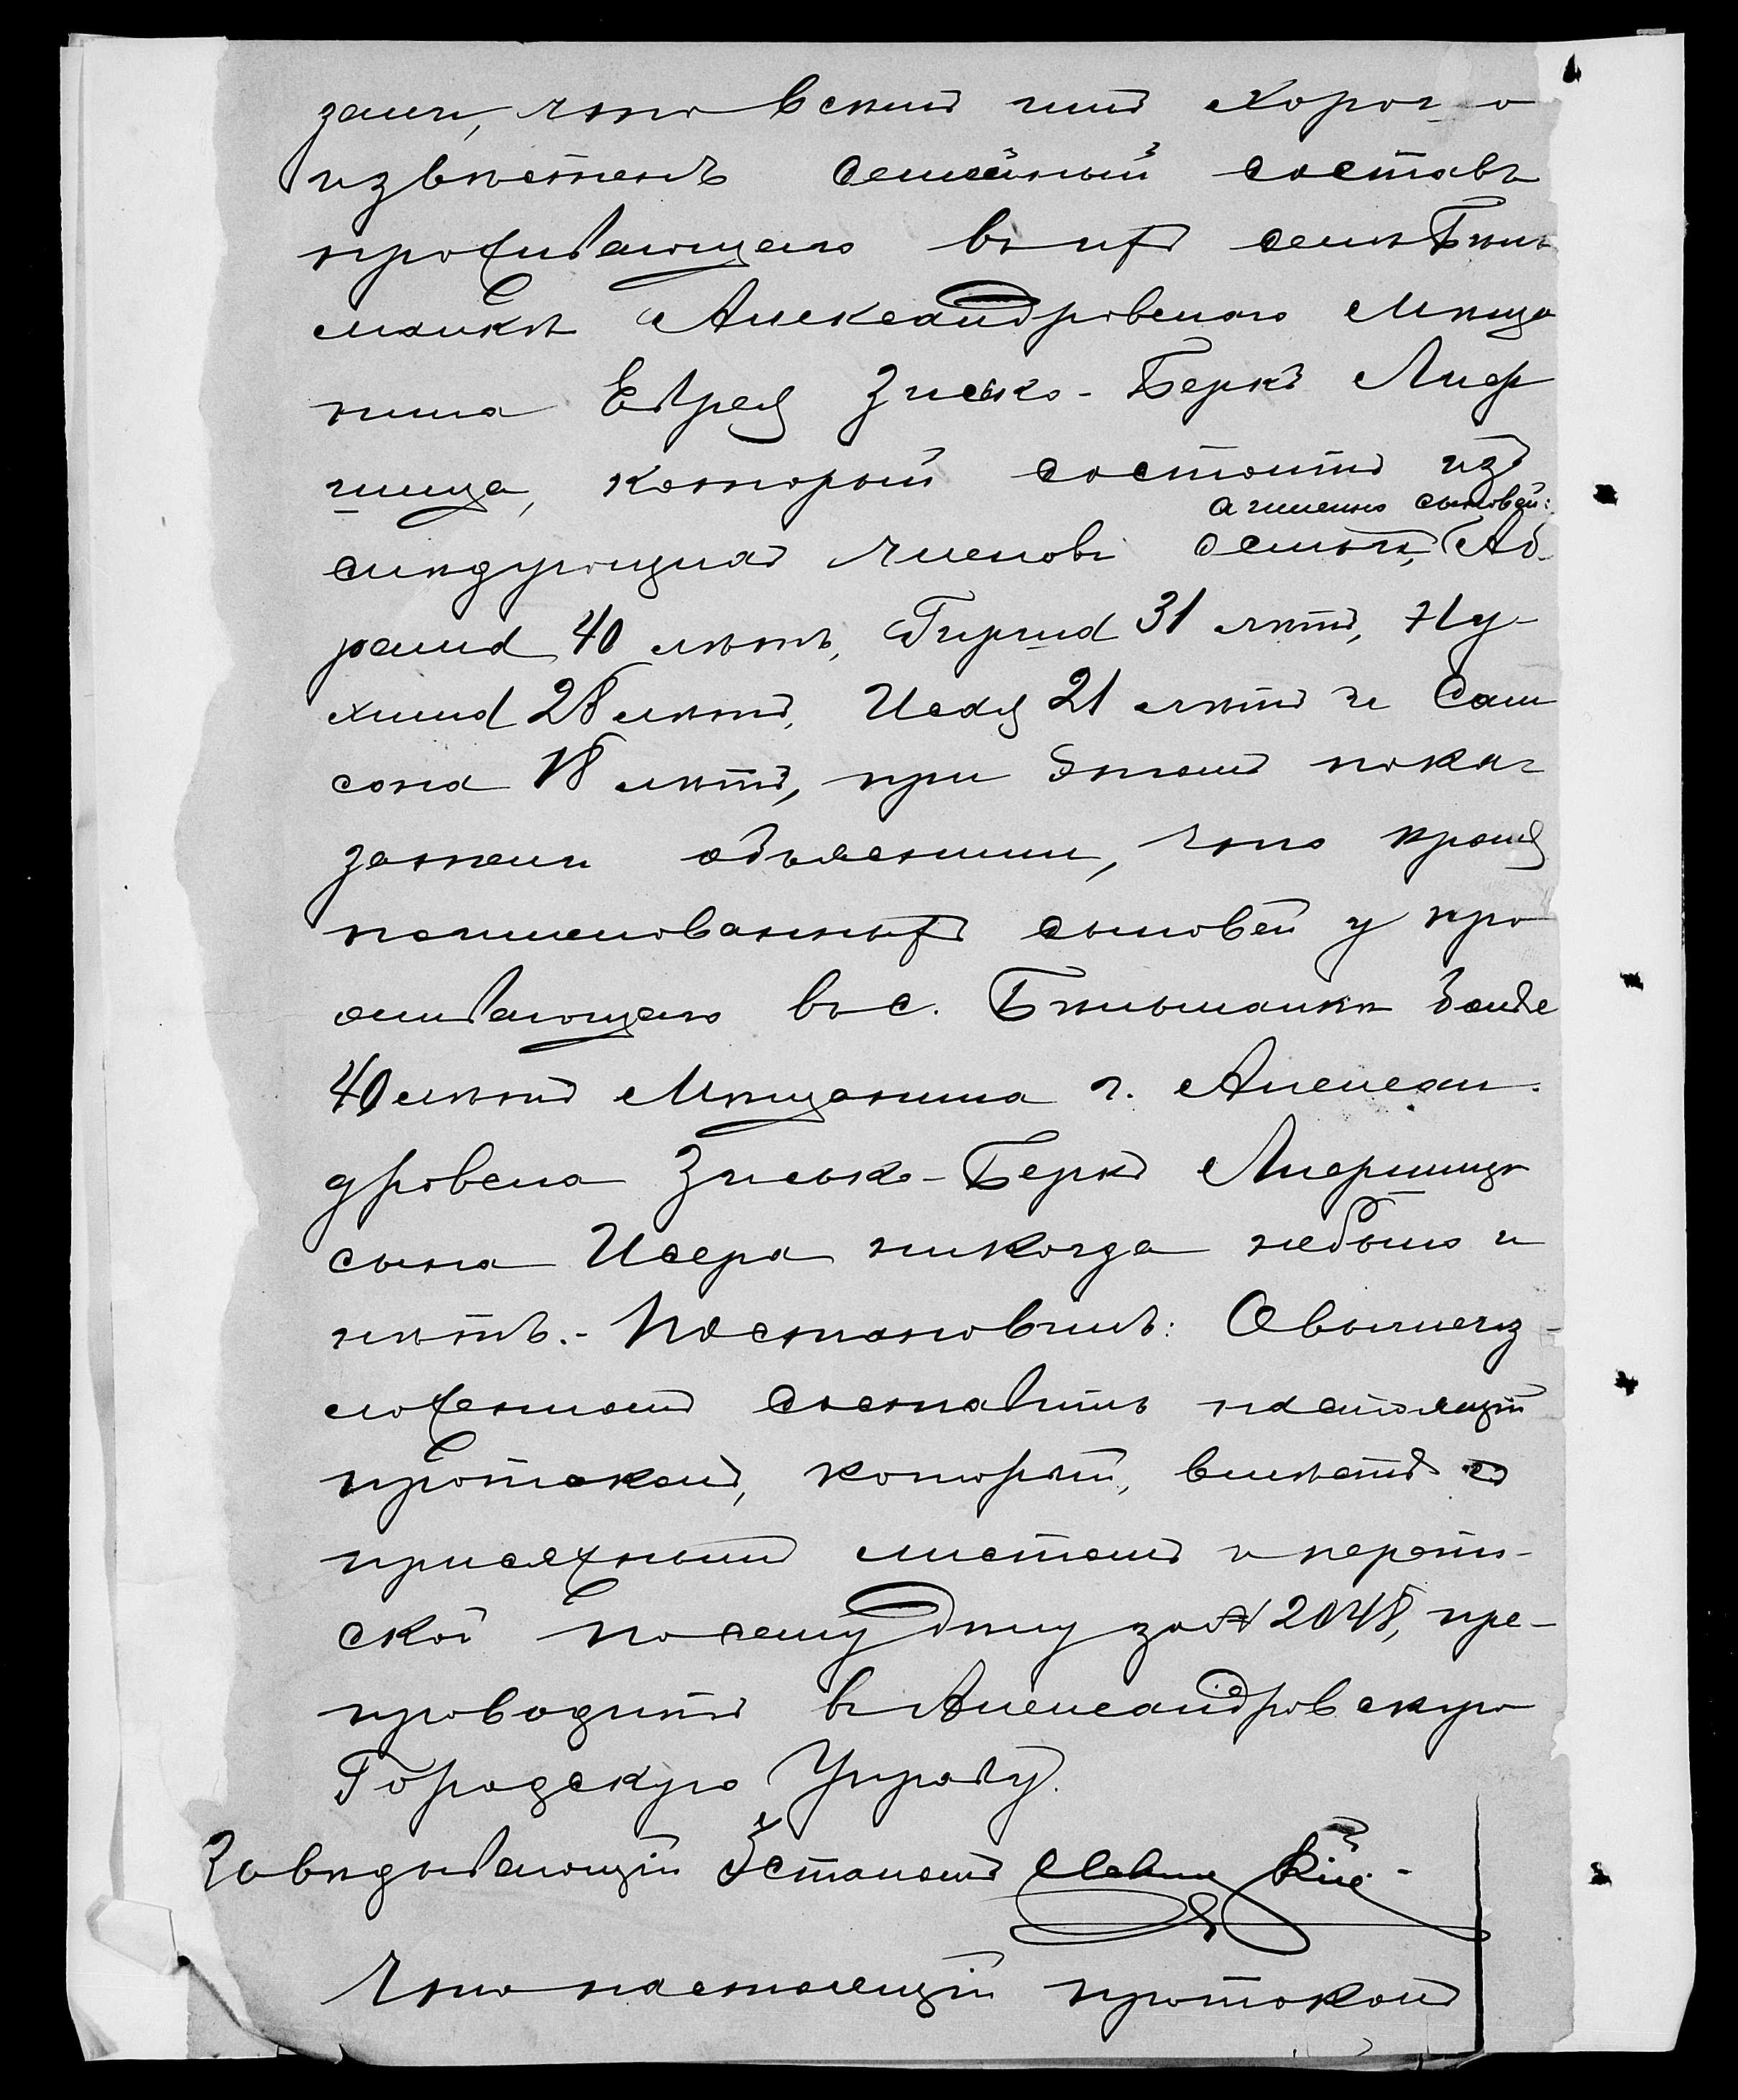 зали, что всѣмъ имъ хорошо
извѣстенъ семейный составъ
проживающаго въ ихъ селѣ Бѣль
манкѣ Александровскаго Мѣща
нина Еврея Зисько-Беркъ Лиф
шица, который состоитъ изъ
а именно сыновей:
слѣдующихъ членовъ семьи, Аб
рама 40 лѣтъ, Гирша 31 лѣтъ, Ну
хима 28 лѣтъ, Исая 21 лѣтъ и Сам
сона 18 лѣтъ, при этомъ пока
затели объяснили, что кромѣ
поименованныхъ сыновей у про
живающаго въ с. Бѣльманкѣ болѣе
40 лѣтъ Мѣщанина г. Алексан
дровска Зисько-Беркъ Лифшица
сына Исера никогда небыло и
нѣтъ.- Постановилъ: О вышеиз-
ложенномъ составить настоящій
протоколъ, который, вмѣстѣ съ
присяжнымъ листомъ и перепи-
ской по сему дѣлу за № 2048, пре-
проводить въ Александровскую
Городскую Управу.
Завѣдывающій Устаномъ
Что настоящій протоколъ